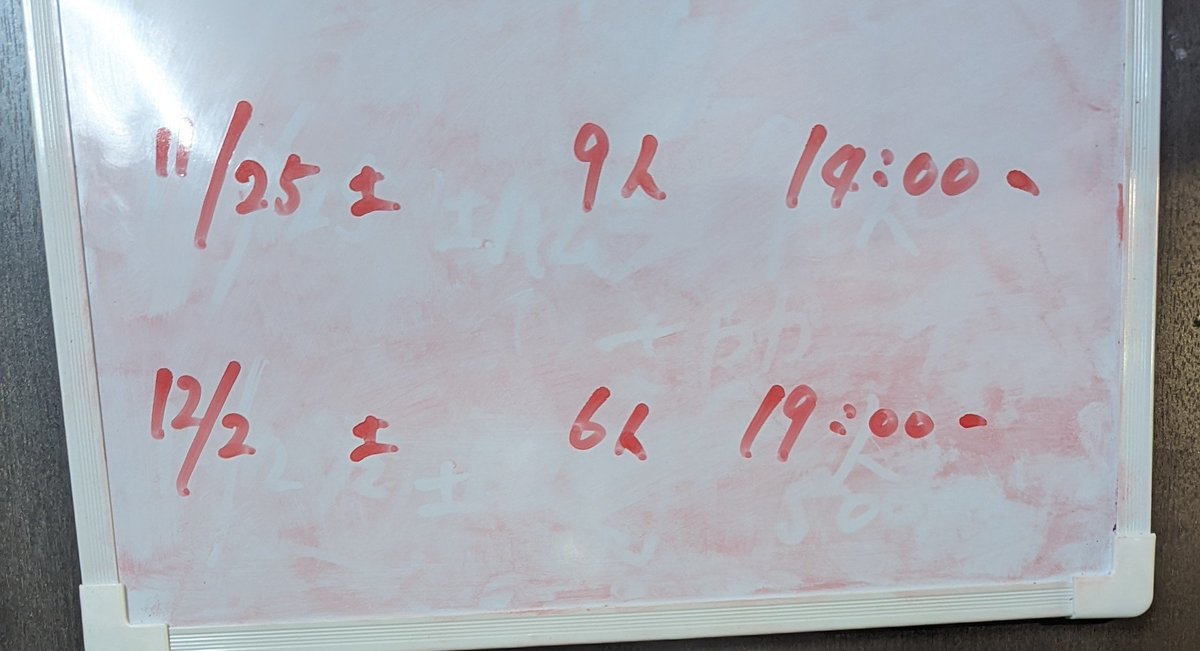 11/25 土 9人 19:00-
12/2 土 6人 19:00-